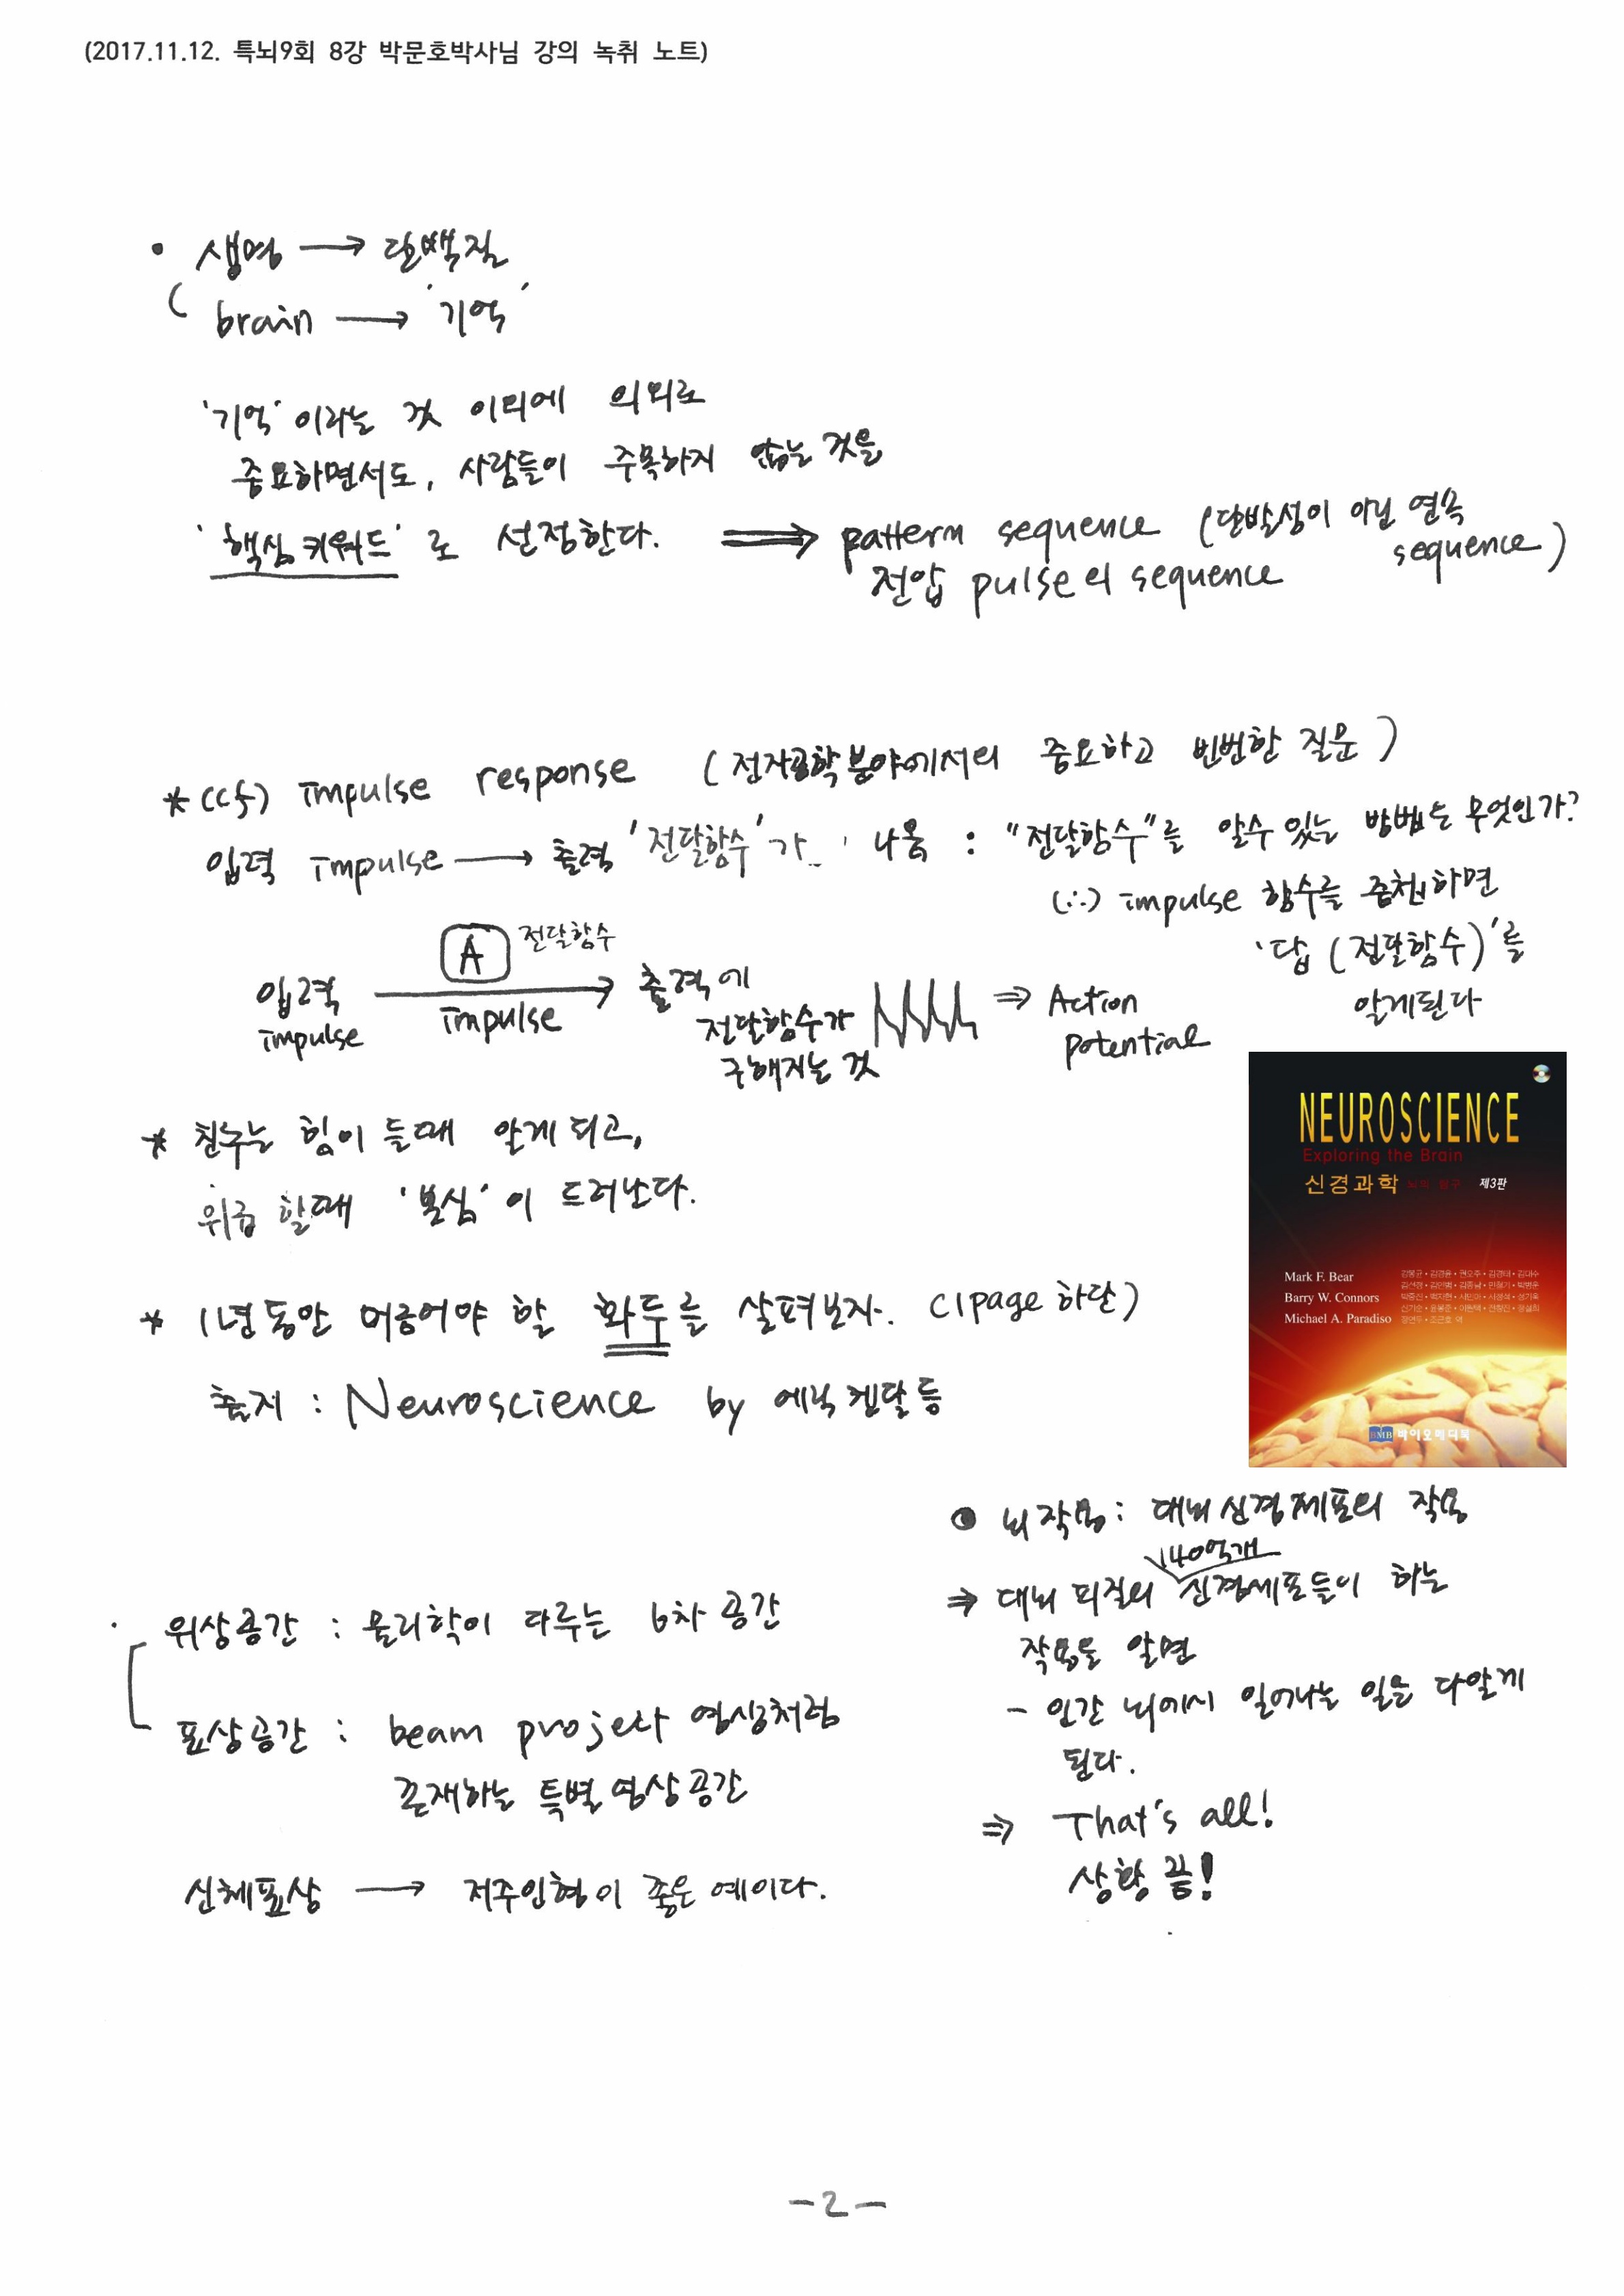 (2017.11.12. 특뇌9회 8강 박문호박사님 강의 녹취 노트)
• 생명 → 단백질
( brain → '기억'
'기억'이라는 것 이외에 의외로
중요하면서도, 사람들이 주목하지 않는 것을
'핵심키워드'로 선정한다. ⟹ pattern sequence (단발성이 아닌 연속 sequence)
전압 pulse의 sequence
* (cf) impulse response (전자공학분야에서의 중요하고 빈번한 질문)
입력 impulse → 출력 '전달함수'가 나옴 : "전달함수"를 알수 있는 방법은 무엇인가?
(∴) impulse 함수를 하면
'답 (전달함수)'를
알게된다
A 전달함수
입력 impulse → 출력에
impulse
전달함수가
구해지는 것
⇒ Action
potential
* 친구는 힘이 들때 알게 되고,
위급 할때 '본심'이 드러난다.
* 1년 동안 머금어야 할 화두를 살펴보자. (1page 하단)
출처 : Neuroscience by 에릭 켄달 등
NEUROSCIENCE
Exploring the Brain
신경과학 뇌의 탐구 제3판
Mark F. Bear
Barry W. Connors
Michael A. Paradiso
BMB 바이오메디북
뇌작용 : 대뇌신경세포의 작용
140억개
⇒ 대뇌 피질의 신경세포들이 하는
작용을 알면
- 인간 뇌에서 일어나는 일을 다알게
된다.
⇒ That's all!
상황 끝!
· 위상공간 : 물리학이 다루는 6차 공간
표상공간 : beam project 영상처럼
존재하는 특별 영상공간
신체표상 → 저주인형이 좋은 예이다.
-2-